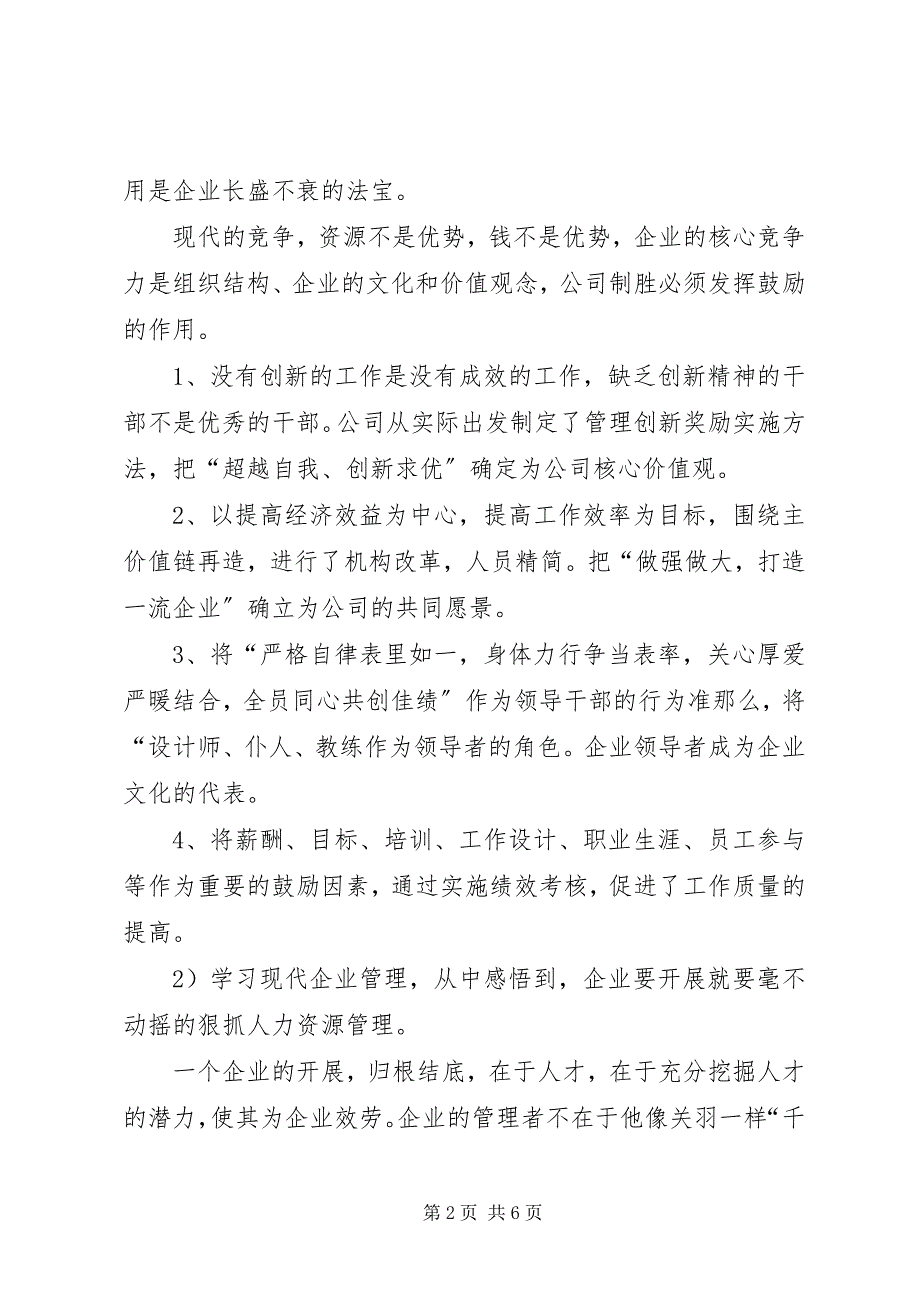 用是企业长盛不衰的法宝。
现代的竞争，资源不是优势，钱不是优势，企业的核心竞争
力是组织结构、企业的文化和价值观念，公司制胜必须发挥鼓励
的作用。
1、没有创新的工作是没有成效的工作，缺乏创新精神的干
部不是优秀的干部。公司从实际出发制定了管理创新奖励实施方
法，把“超越自我、创新求优〞确定为公司核心价值观。
2、以提高经济效益为中心，提高工作效率为目标，围绕主
价值链再造，进行了机构改革，人员精简。把“做强做大，打造
一流企业〞确立为公司的共同愿景。
3、将“严格自律表里如一，身体力行争当表率，关心厚爱
严暖结合，全员同心共创佳绩〞作为领导干部的行为准那么，将
“设计师、仆人、教练作为领导者的角色。企业领导者成为企业
文化的代表。
4、将薪酬、目标、培训、工作设计、职业生涯、员工参与
等作为重要的鼓励因素，通过实施绩效考核，促进了工作质量的
提高。
2）学习现代企业管理，从中感悟到，企业要开展就要毫不
动摇的狠抓人力资源管理。
一个企业的开展，归根结底，在于人才，在于充分挖掘人才
的潜力，使其为企业效劳。企业的管理者不在于他像关羽一样“千
第 2 页 共 6 页